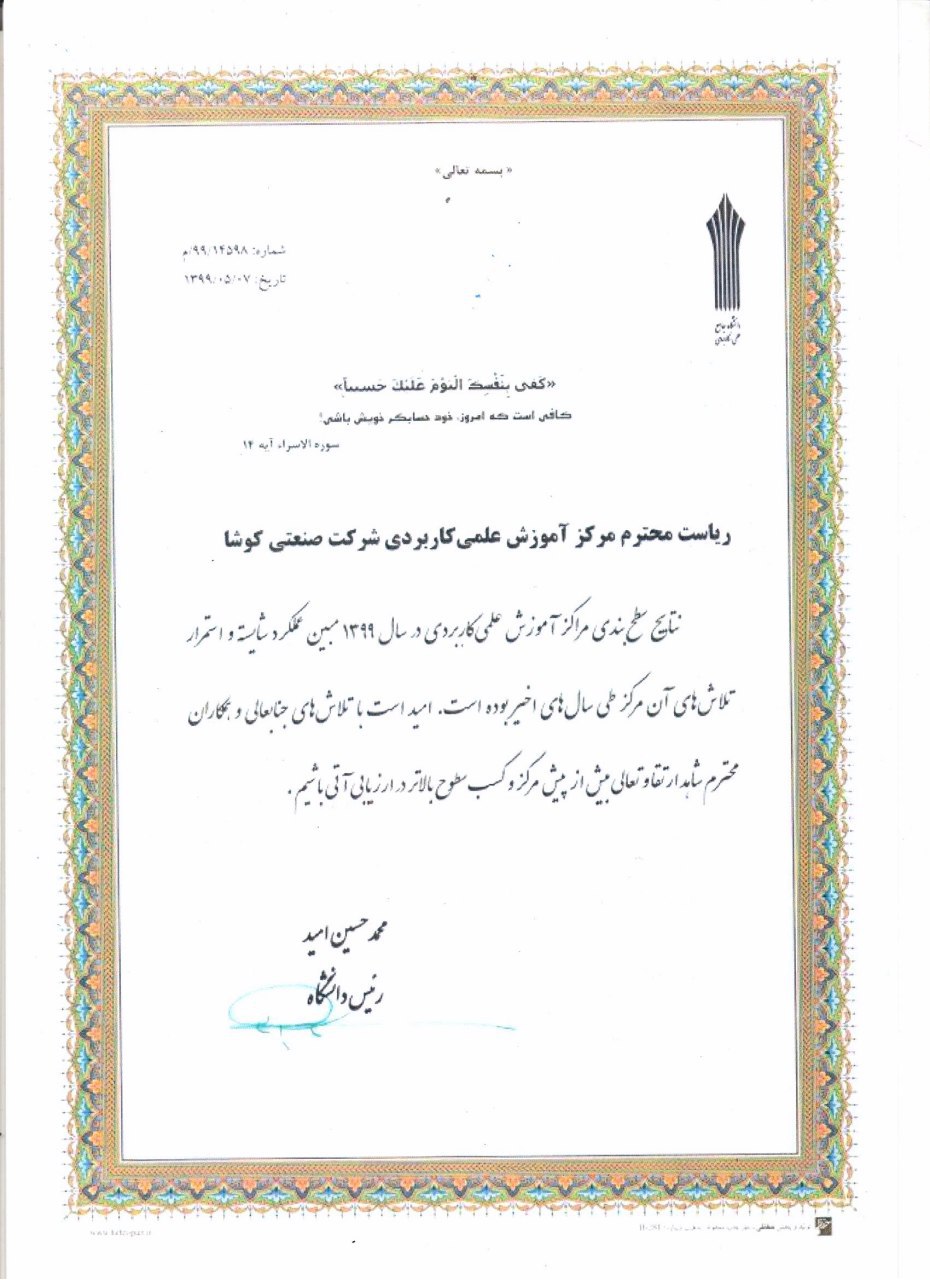 « بسمه تعالی»
شماره: ۹۹/۱۴۵۹۸/م
تاریخ: ۱۳۹۹/۰۵/۰۷
دانشگاه جامع
علمی کاربردی
«كَفى بِنَفْسِكَ الْيَوْمَ عَلَيْكَ حَسيباً»
کافی است که امروز، خود حسابگر خویش باشی!
سوره الاسراء آیه ۱۴
ریاست محترم مرکز آموزش علمی‌کاربردی شرکت صنعتی کوشا
نتایج سطح بندی مراکز آموزش علمی‌کاربردی در سال ۱۳۹۹ مبین عملکرد شایسته و استمرار
تلاش‌های آن مرکز طی سال‌های اخیر بوده است. امید است با تلاش‌های جنابعالی و همکاران
محترم شاهد ارتقا و تعالی بیش از پیش مرکز و کسب سطوح بالاتر در ارزیابی آتی باشیم.
محمد حسین امید
رئیس دانشگاه